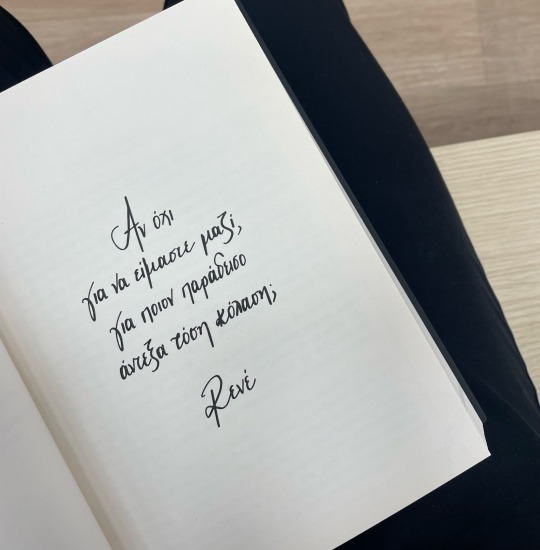 Αν όχι
για να είμαστε μαζί,
για ποιον παράδεισο
άντεξα τόση κόλαση;
Ρενέ